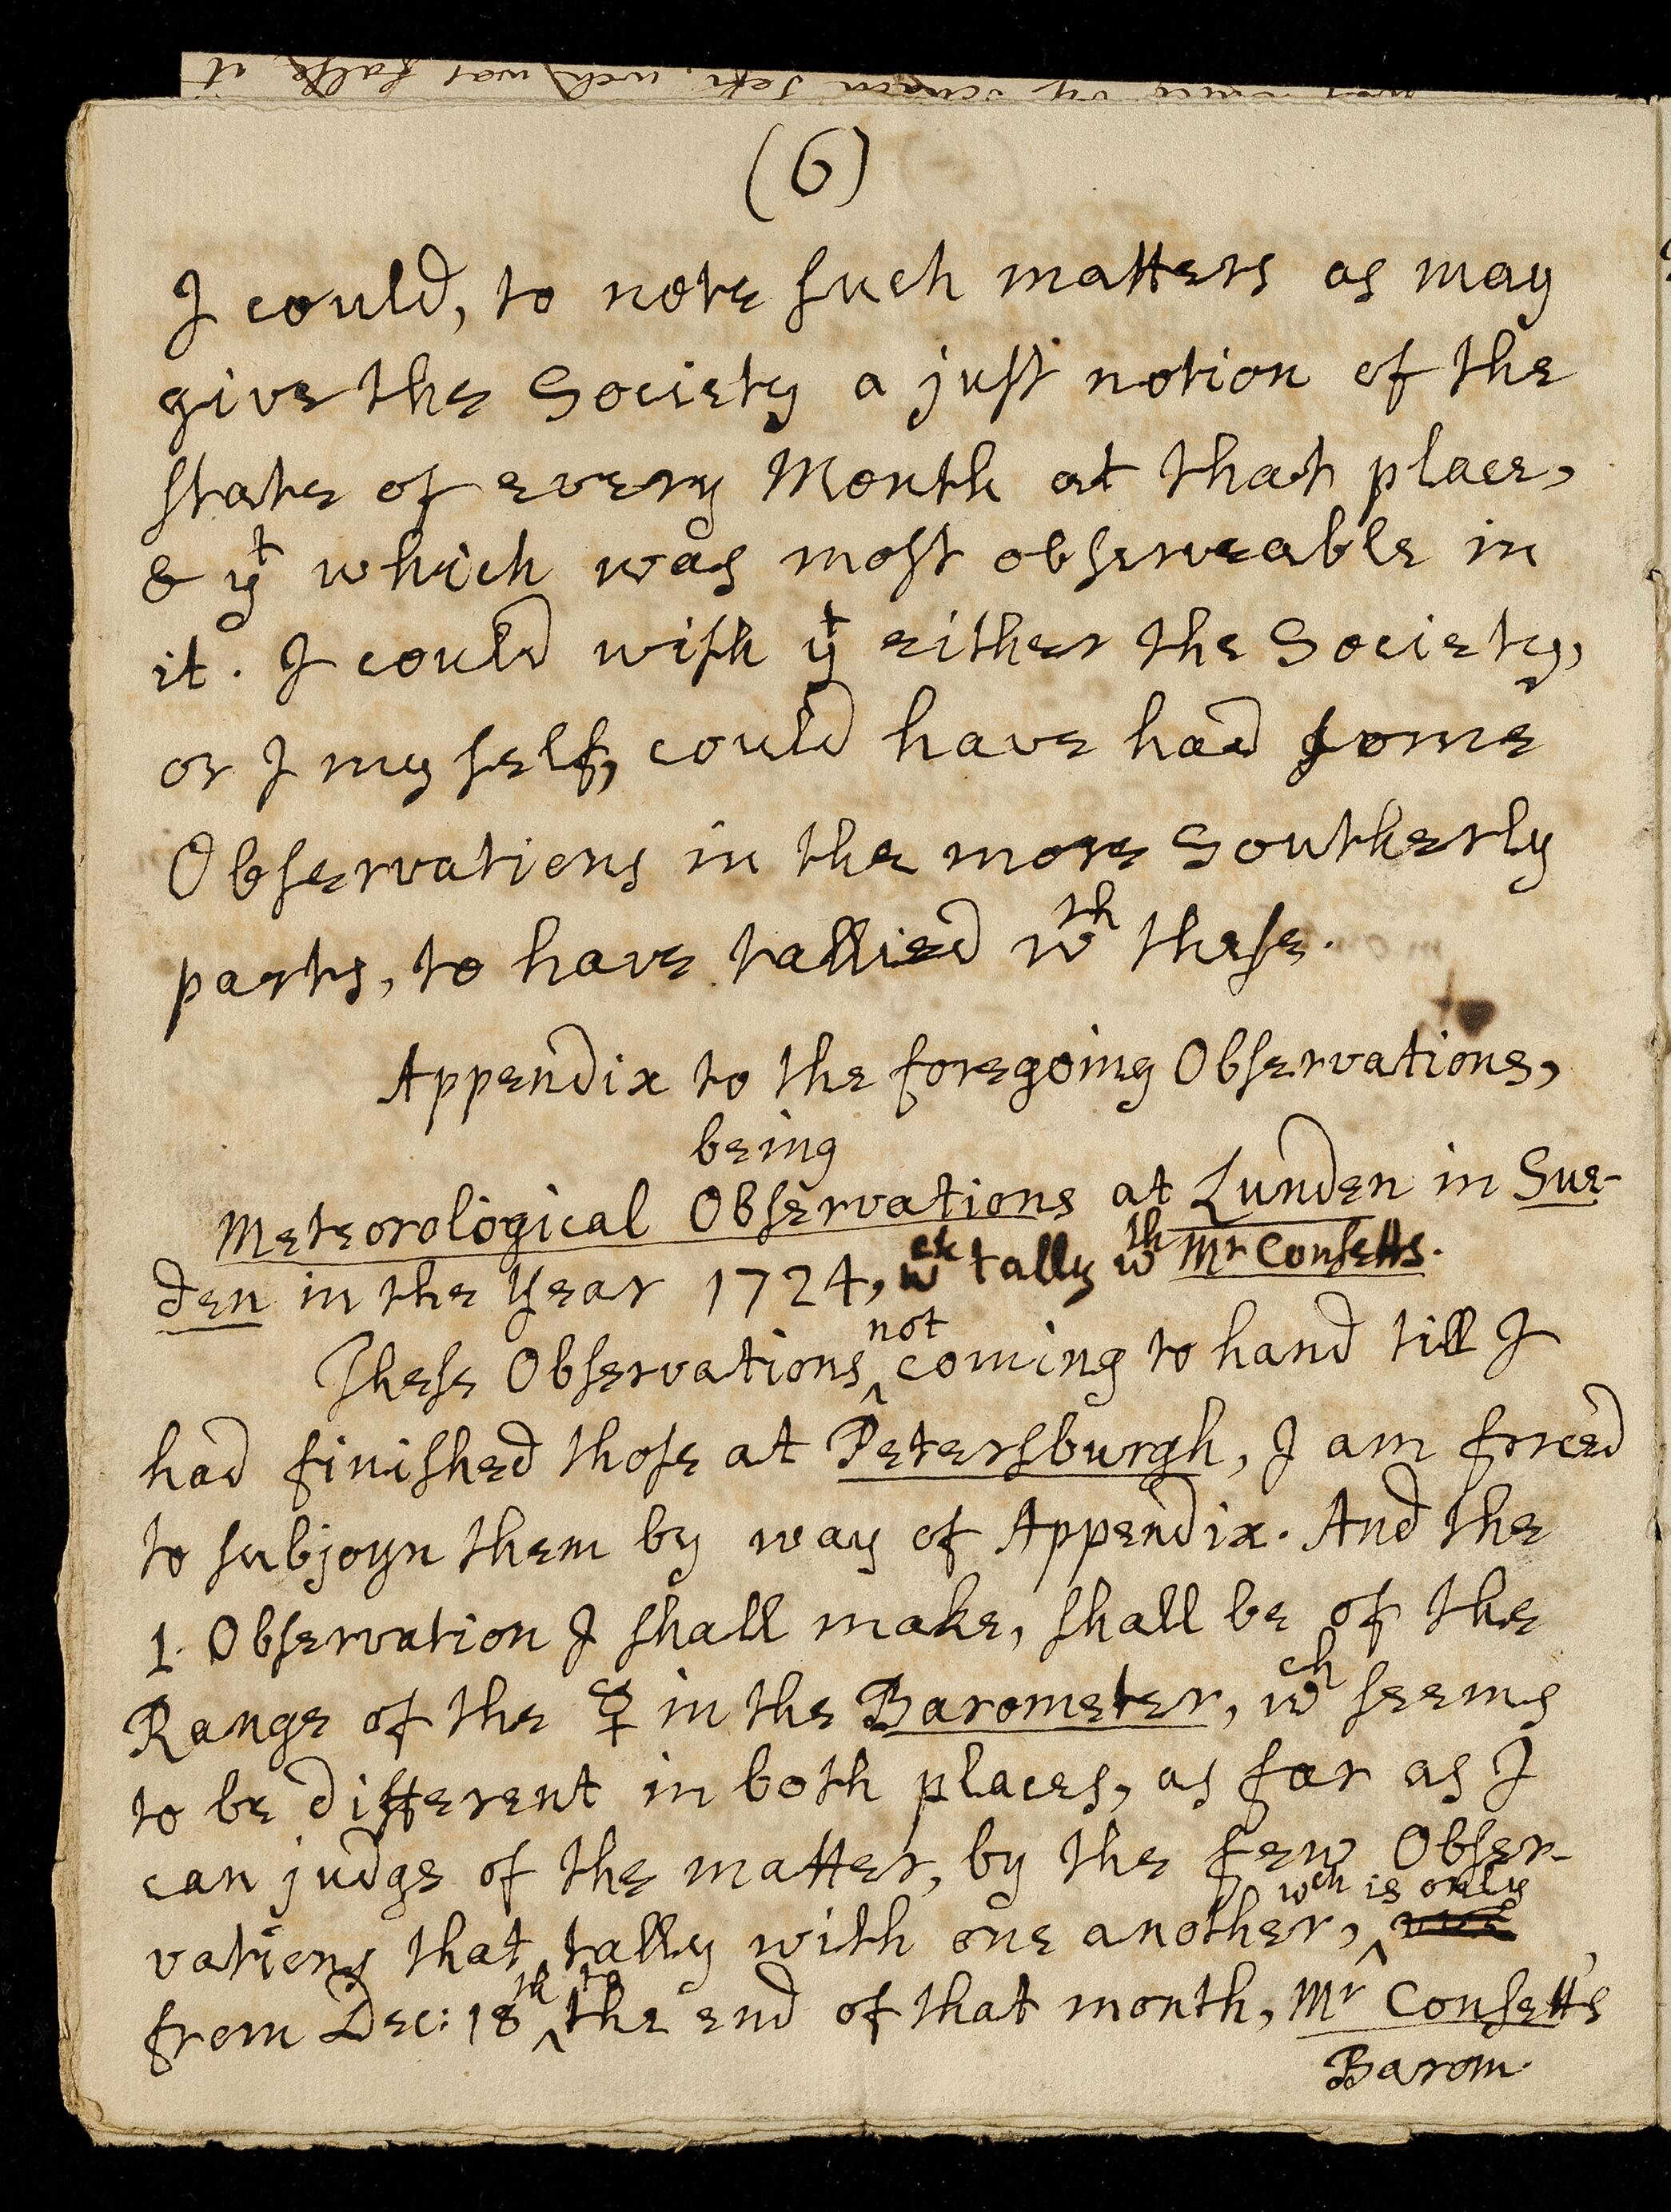 (6)
I could, to note such matters as may
give the Society a just notion of the
state of every Month at that place,
& yt which was most observeable in
it. I could wish yt either the Society,
or I my self, could have had some
Observations in the more Southerly
parts, to have tallied wth these.
Appendix to the foregoing Observations,
being
Meteorological Observations at Lunden in Sue-
den in the Year 1724, wch tally wth Mr Consetts.
These Observations not coming to hand till I
had finished those at Petersburgh, I am forced
to subjoyn them by way of Appendix. And the
1. Observation I shall make, shall be of the
Range of the ☿ in the Barometer, wch seems
to be different in both places, as far as I
can judge of the matter, by the few Obser-
vations that tally with one another, wch is only
from Dec: 18th to the end of that month, Mr Consett's
Barom.